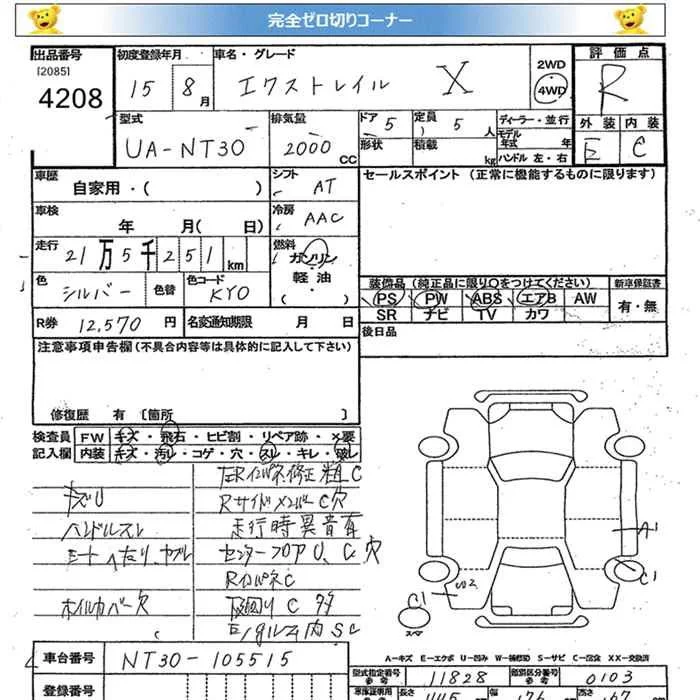 完全ゼロ切りコーナー
出品番号 初度登録年月 車名・グレード 評価点
[2085] 4208 15 8月 エクストレイル X 2WD 4WD R
型式 排気量 ドア 5 定員 5人 ディーラー・並行 外装 内装
UA-NT30 2000CC 形状 積載 kg モデル年式 年 ハンドル 左・右 E C
車歴 自家用・( ) シフト AT セールスポイント (正常に機能するものに限ります)
車検 年 月( 日) 冷房 AAC
走行 21万5千251km 燃料 ガソリン
軽油
( )
色 シルバー 色替 色コード KY0 装備品 (純正品に限り○をつけてください) 新車保証書
PS PW ABS エアB AW 有・無
SR ナビ TV カワ
R券 12,570円 名変通知期限 月 日 後日品
注意事項申告欄 (不具合内容等は具体的に記入して下さい)
修復歴 有 [箇所 ]
検査員 FW キズ・飛石・ヒビ割・リペア跡・×要
記入欄 内装 キズ・汚レ・コゲ・穴・スレ・キレ・破レ
インパネ修正 粗 C
キズU Rサイドメンバー C穴
ハンドルスレ 走行時異音有
シートヘタリ、ヤブレ センターフロアU、C穴
RインパネC
ホイルカバー欠 下回りC多
内SC
A1
C1
U2
C1
スペア
A-キズ E-エクボ U-凹み W-補修跡 S-サビ C-腐食 XX-交換済
車台番号 NT30-105515
型式指定番号 参考 11828 類別区分番号 参考 0103
登録番号 車庫証明用 参考 長さ 445 幅 176 高さ 167